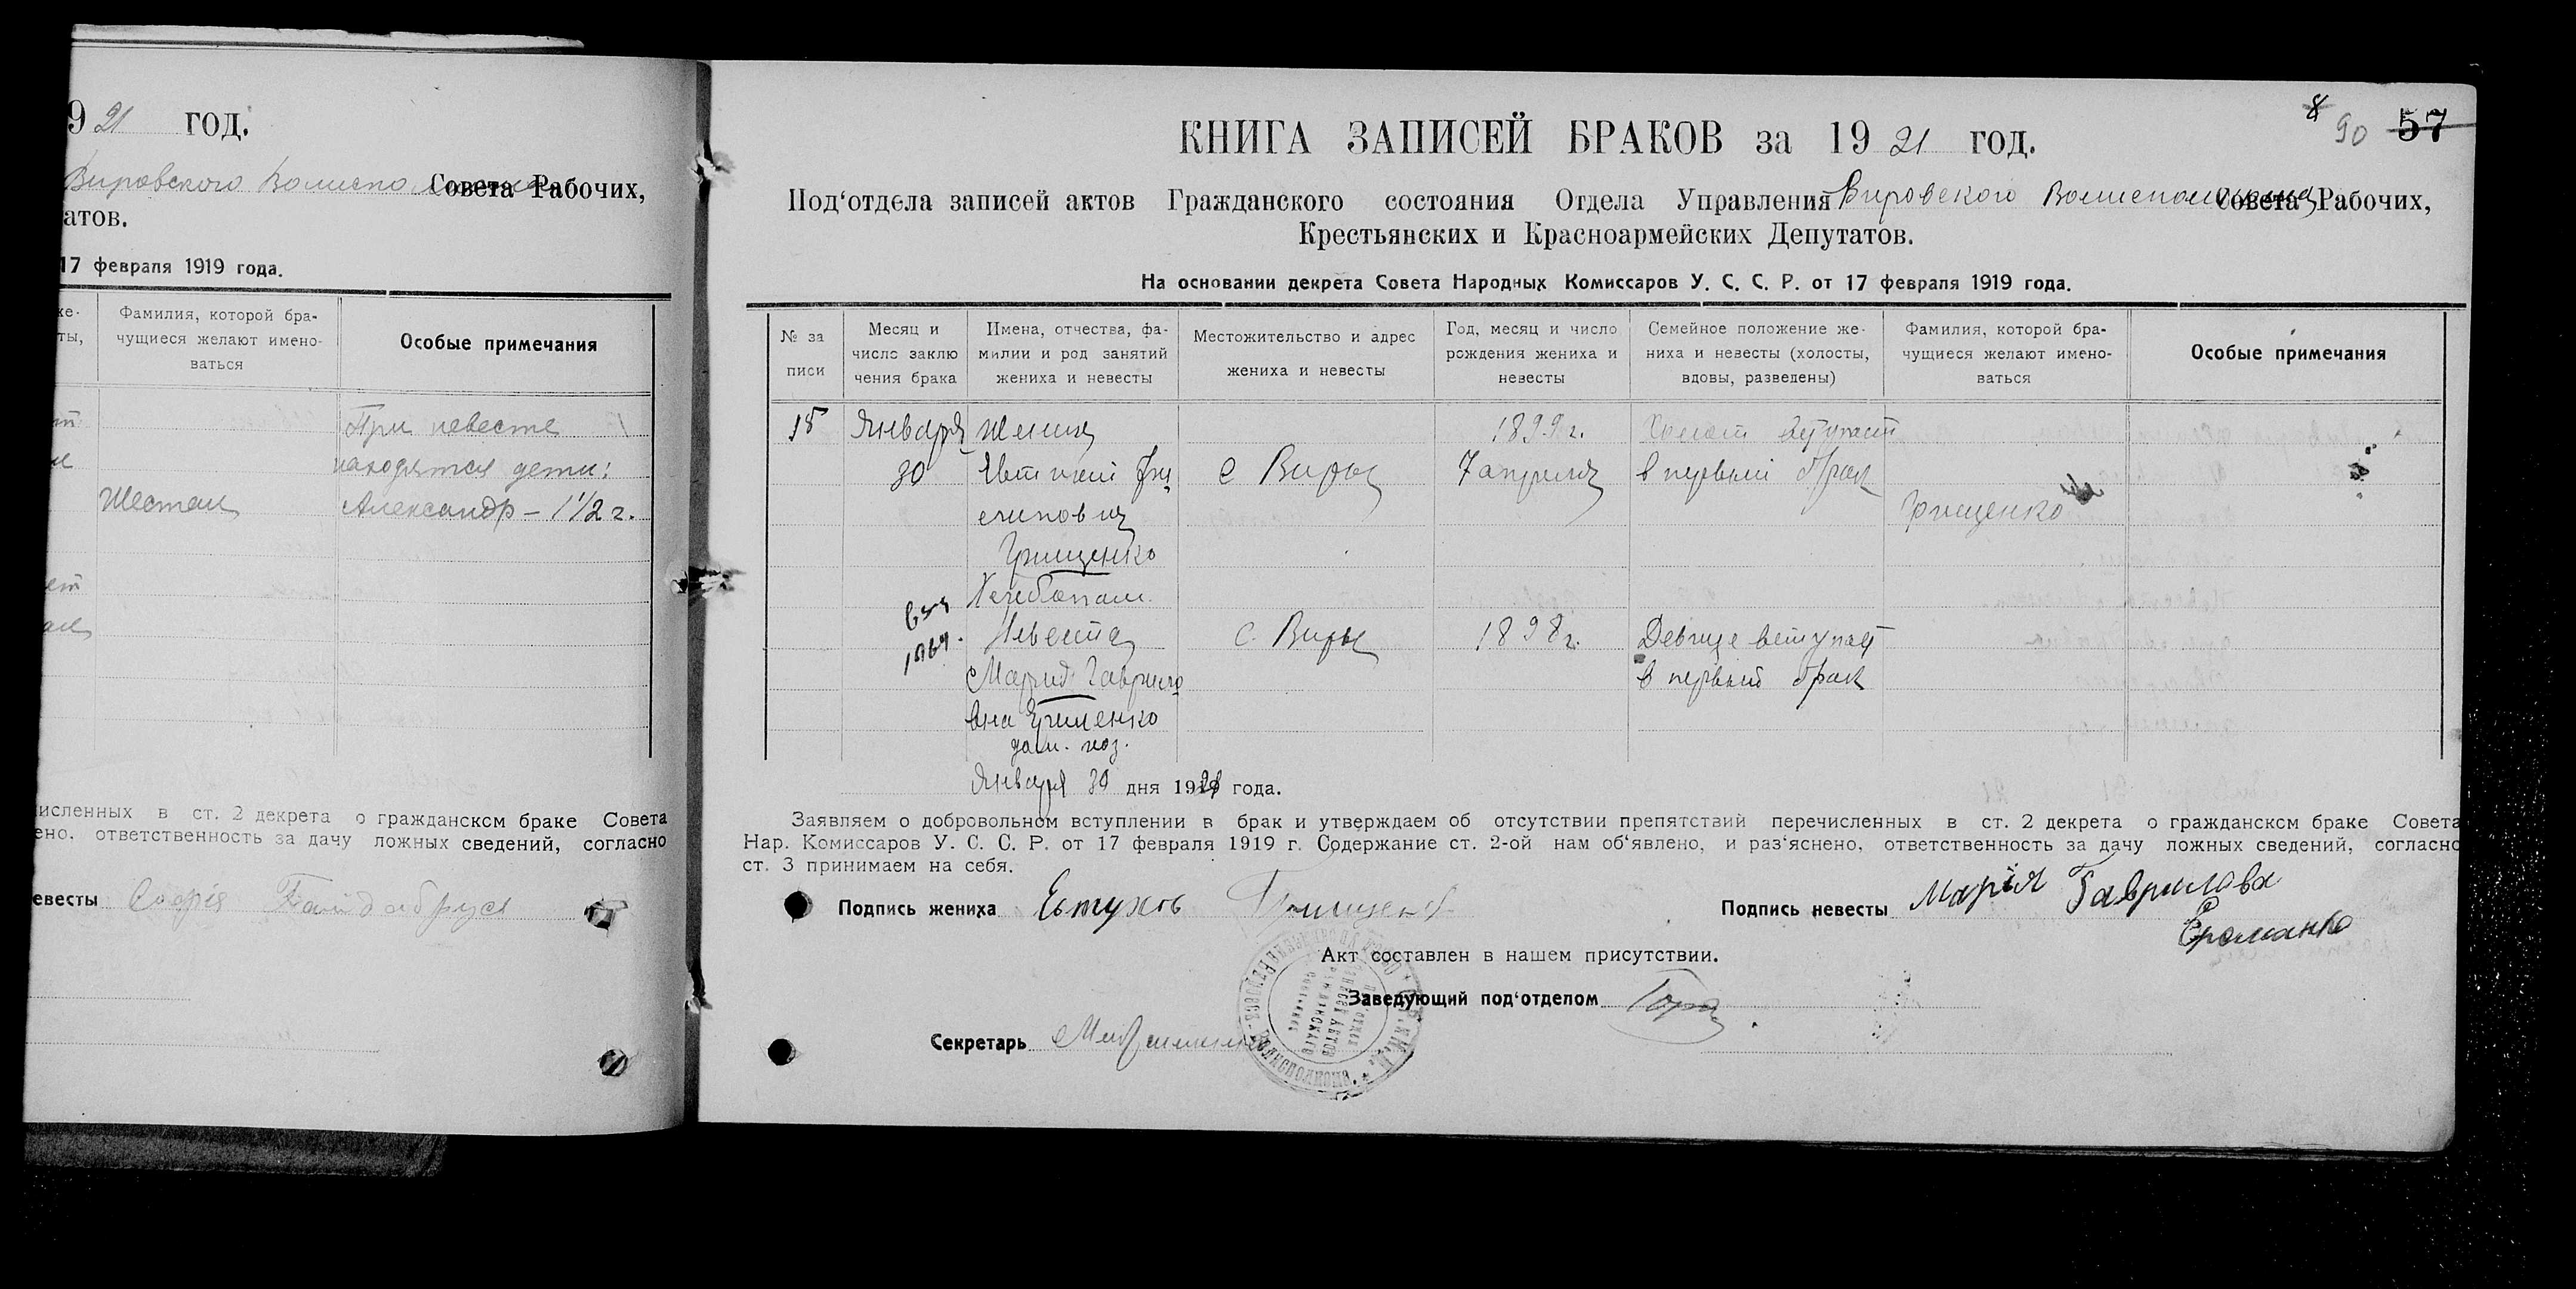 9 21 год.
Вировского Волиспо Совета Рабочих,
атов.
17 февраля 1919 года.
Фамилия, которой бра-
чущиеся желают имено-
ваться
Особые примечания
При невесте
находятся дети:
Шестак
Александр – 1 1/2 г.
численных в ст. 2 декрета о гражданском браке Совета
ено, ответственность за дачу ложных сведений, согласно
евесты Софія
8 90 57
КНИГА ЗАПИСЕЙ БРАКОВ за 19 21 год.
Под‘отдела записей актов Гражданского состояния Отдела Управления Вировского Волисполкома Совета Рабочих,
Крестьянских и Красноармейских Депутатов.
На основании декрета Совета Народных Комиссаров У. С. С. Р. от 17 февраля 1919 года.
№ за
писи
Месяц и
число заклю
чения брака
Имена, отчества, фа-
милии и род занятий
жениха и невесты
Местожительство и адрес
жениха и невесты
Год, месяц и число
рождения жениха и
невесты
Семейное положение же-
ниха и невесты (холосты,
вдовы, разведены)
Фамилия, которой бра-
чущиеся желают имено-
ваться
Особые примечания
15
Января
30
Жених
Евтихий Фи
липович
Грищенко
Хлебопаш.
с Виры
1899 г.
7 апреля
Холост вступает
в первый брак
Грищенко
Невеста
Мария Гаврило
вна Ерименко
дом. хоз.
с. Виры
1898 г.
Девица вступает
в первый брак
Января 30 дня 1921 года.
Заявляем о добровольном вступлении в брак и утверждаем об отсутствии препятствий перечисленных в ст. 2 декрета о гражданском браке Совета
Нар. Комиссаров У. С. С. Р. от 17 февраля 1919 г. Содержание ст. 2-ой нам об‘явлено, и раз‘яснено, ответственность за дачу ложных сведений, согласно
ст. 3 принимаем на себя.
Подпись жениха Евтухъ Грищенко
Подпись невесты Марія Гаврилова
Еременко
Акт составлен в нашем присутствии.
Заведующий под‘отделом
Секретарь